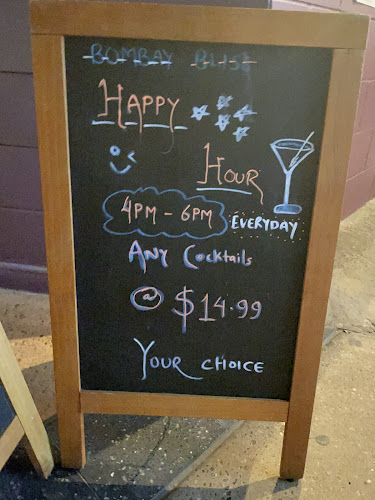 BOMBAY BLISS
HAPPY
HOUR
4PM - 6PM
EVERYDAY
ANY Cocktails
@ $14.99
YOUR CHOICE